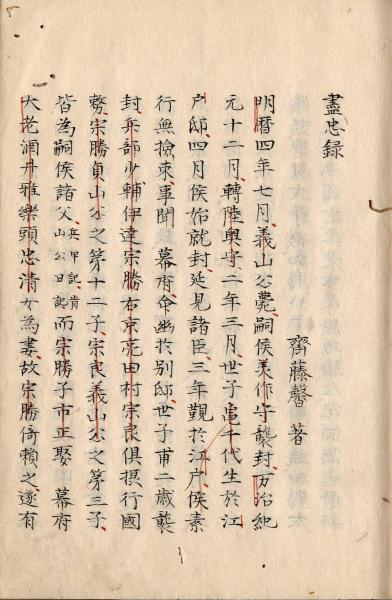 盡忠録
齊藤馨 著
明暦四年七月義山公薨嗣侯美作守襲封万治紀
元十二月轉陸奥守二年三月世子亀千代生於江
戸邸四月侯始就封延見諸臣三年覲於江戸侯素
行無撿束事聞 幕府命幽於別邸世子甫二歳襲
封兵部少輔伊達宗勝右京亮田村宗良俱攝行國
務宗勝貞山公之第十二子宗良義山公之第三子
皆為嗣侯諸父兵甲記肯山公日記而宗勝子市正娶 幕府
大老酒井雅樂頭忠清女為妻故宗勝倚賴之遂有